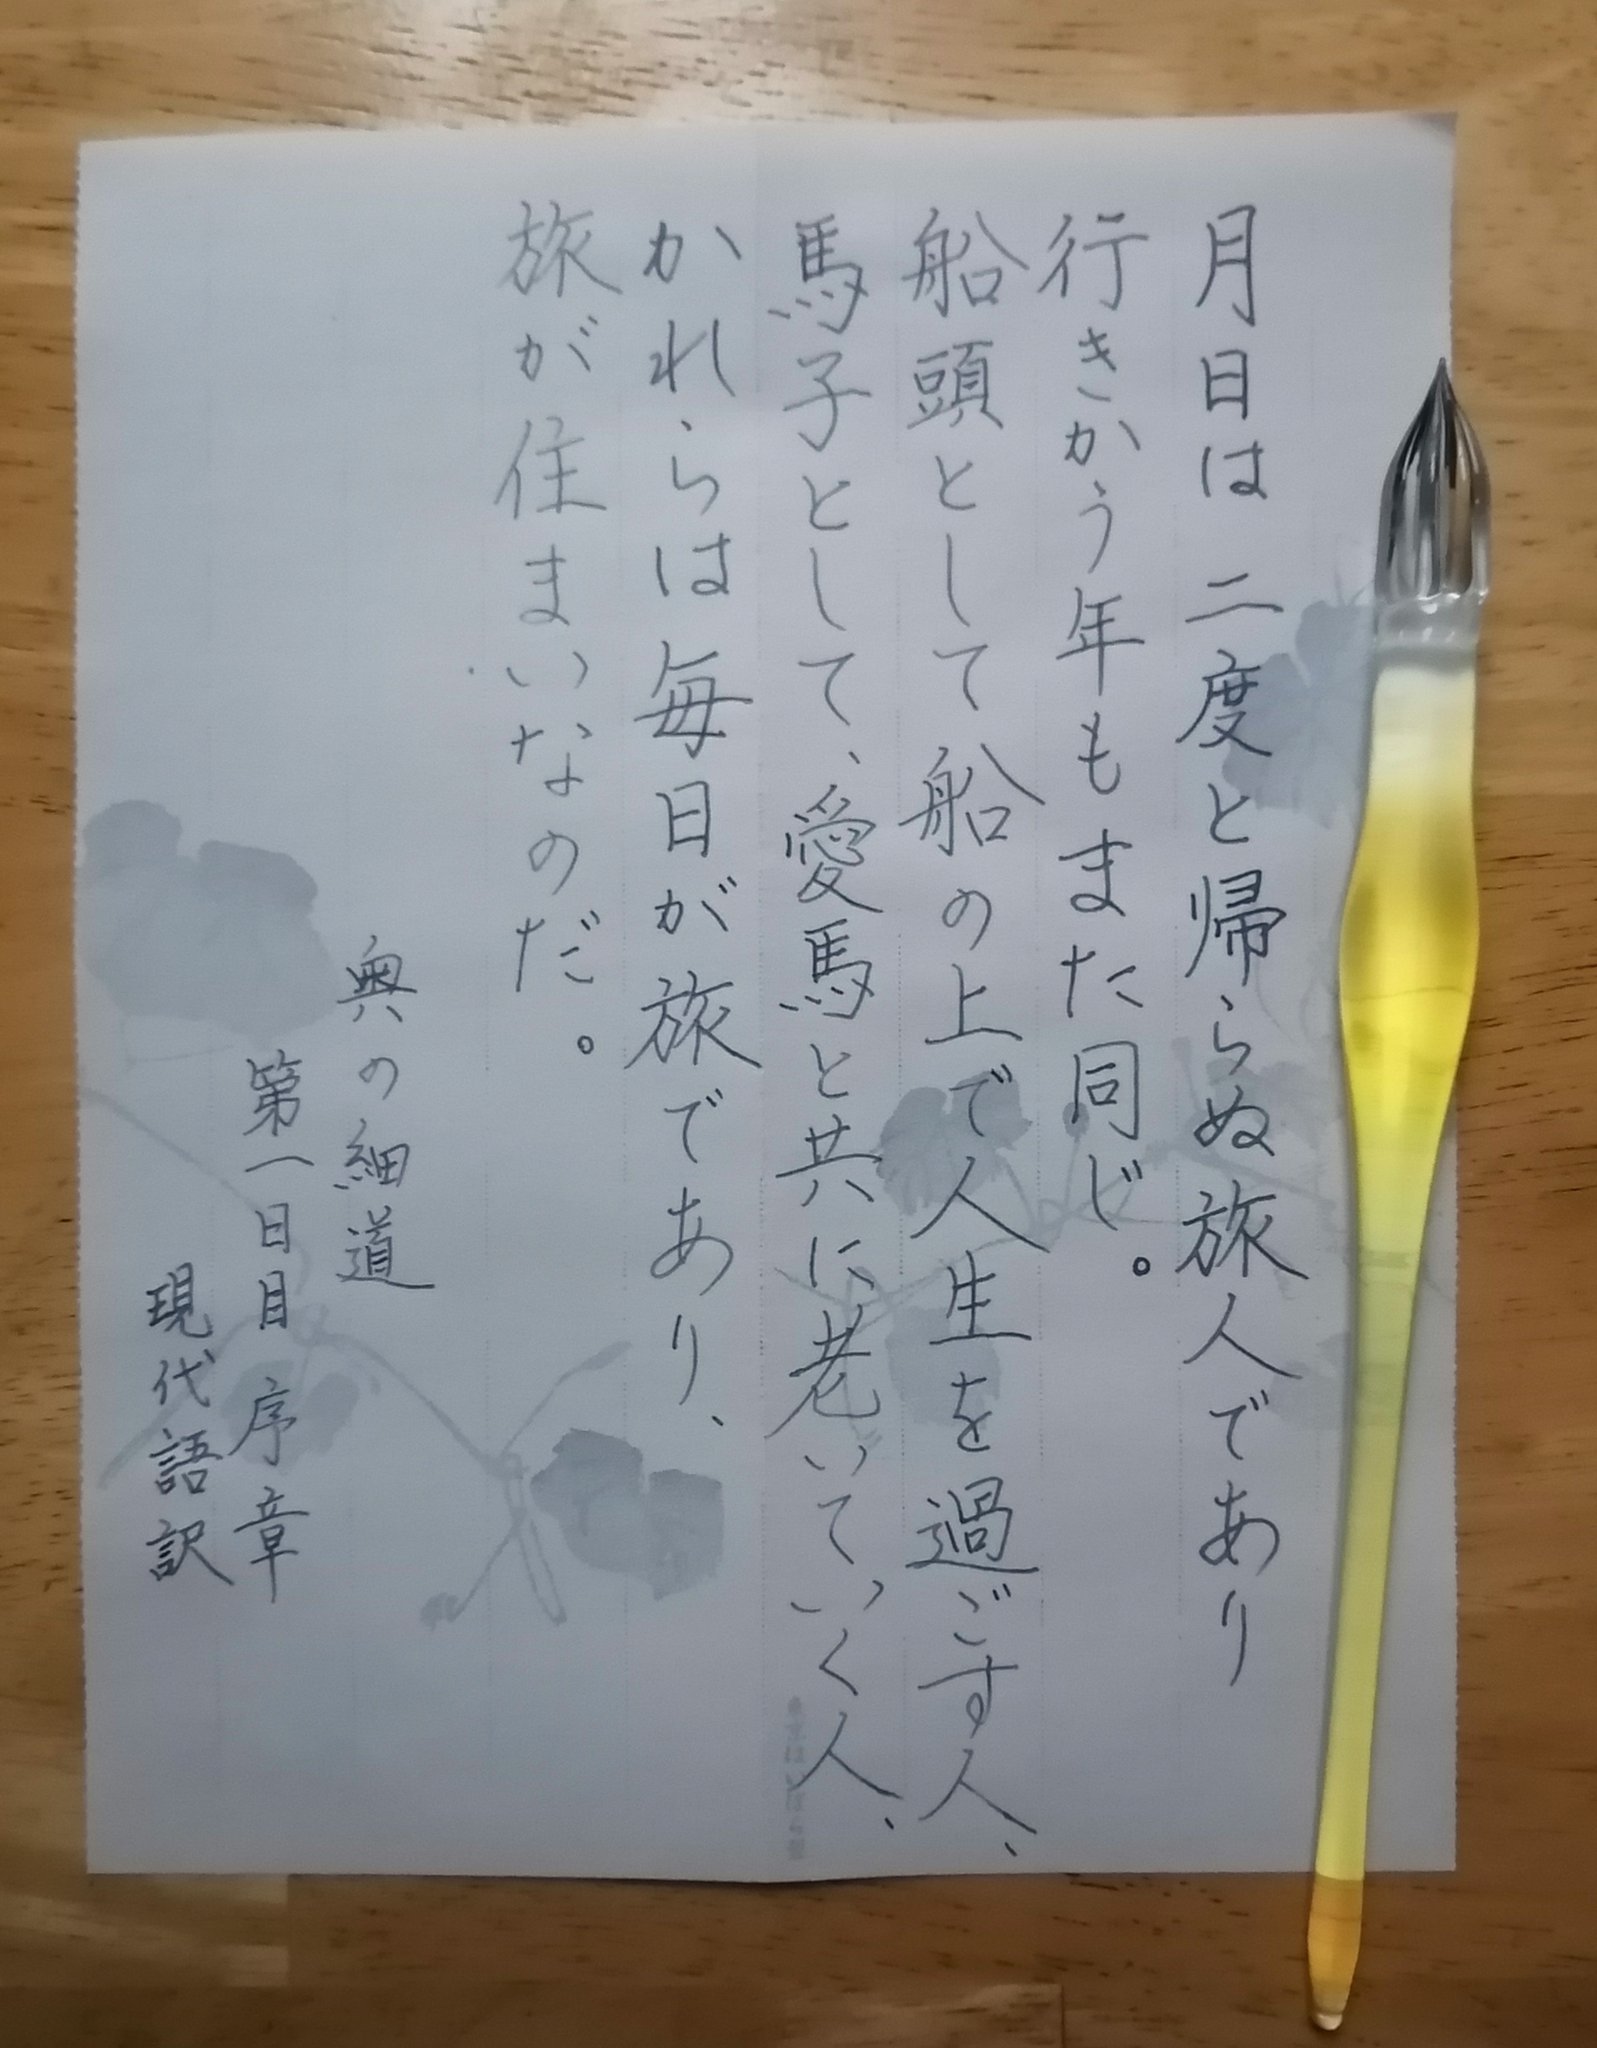 月日は二度と帰らぬ旅人であり
行きかう年もまた同じ。
船頭として船の上で人生を過ごす人、
馬子として、愛馬と共に老いていく人、
かれらは毎日が旅であり、
旅が住まいなのだ。
奥の細道
第一日目 序章
現代語訳